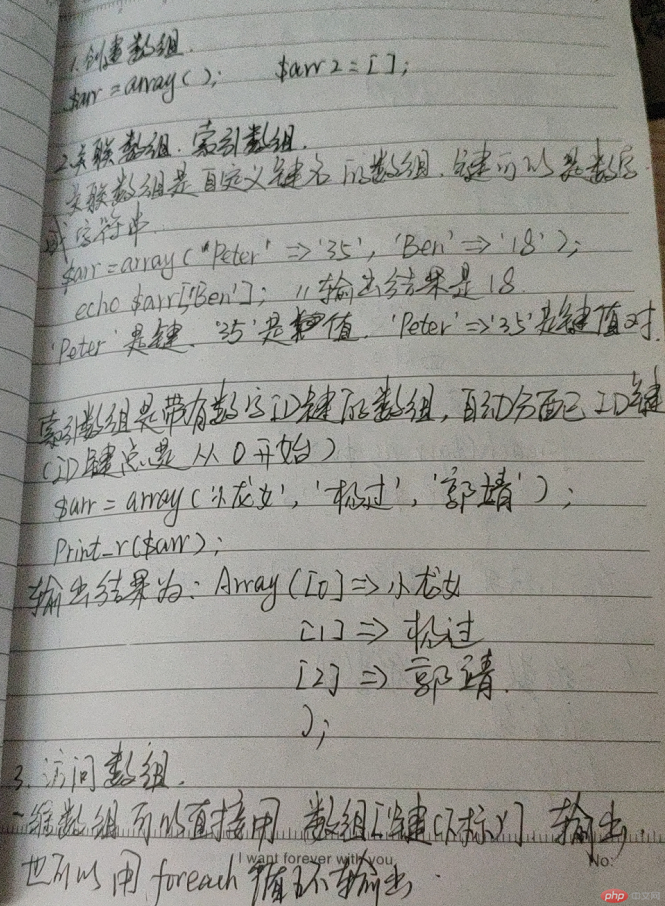 1.创建数组.
$arr = array();   $arr2 = [];
2.关联数组.索引数组.
关联数组是自定义键名的数组.键可以是数字
或字符串.
$arr = array("Peter' => '35', 'Ben' => '18');
echo $arr['Ben']; //输出结果是18.
'Peter'是键.'35'是值.'Peter' => '35'是键值对.
索引数组是带有数字ID键的数组,自动分配ID键
(ID键总是从0开始)
$arr = array('小龙女','杨过','郭靖');
Print_r($arr);
输出结果为: Array([0] => 小龙女
[1] => 杨过
[2] => 郭靖.
);
3.访问数组.
一维数组可以直接用 数组['键(下标)'] 输出.
也可以用 foreach 循环输出.
I want forever with you.
No:
php 中文网